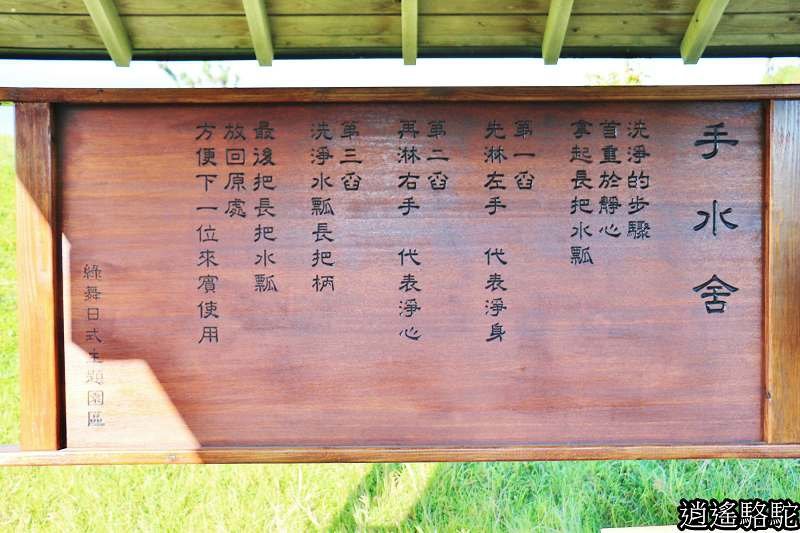 手水舍
洗淨的步驟
首重於靜心
拿起長把水瓢
第一舀
先淋左手 代表淨身
第二舀
再淋右手 代表淨心
第三舀
洗淨水瓢長把柄
最後把長把水瓢
放回原處
方便下一位來賓使用
綠舞日式主題園區
逍遙駱駝